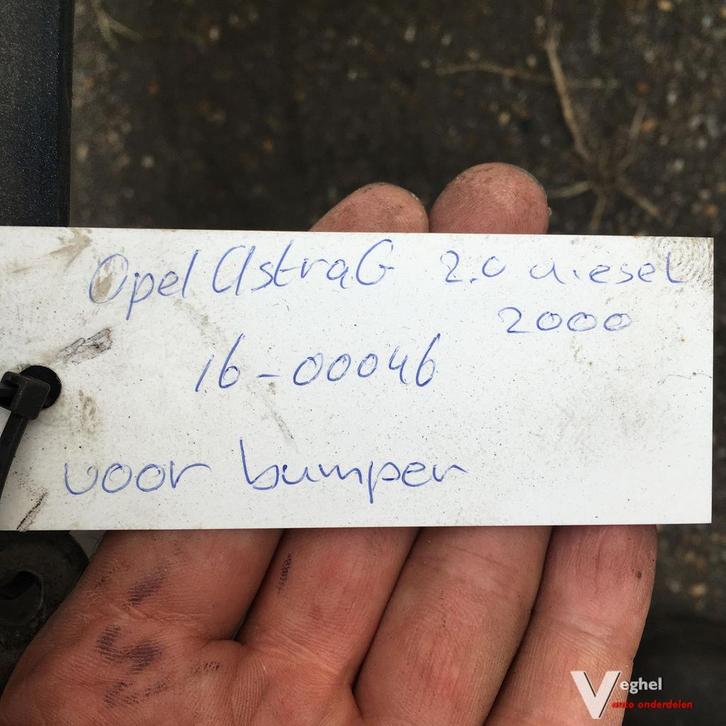 Opel Astra G 2.0 diesel
2000
16-00046
voor bumper
Veghel
auto onderdelen